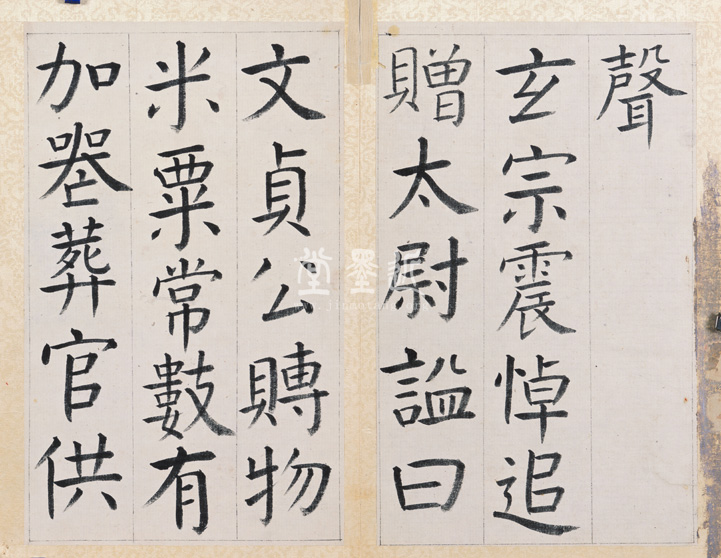 聲
玄宗震悼追
贈太尉謚曰
文貞公賻物
米粟常數有
加器葬官供